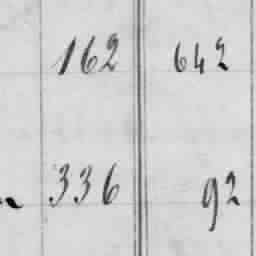 162 642
336 92